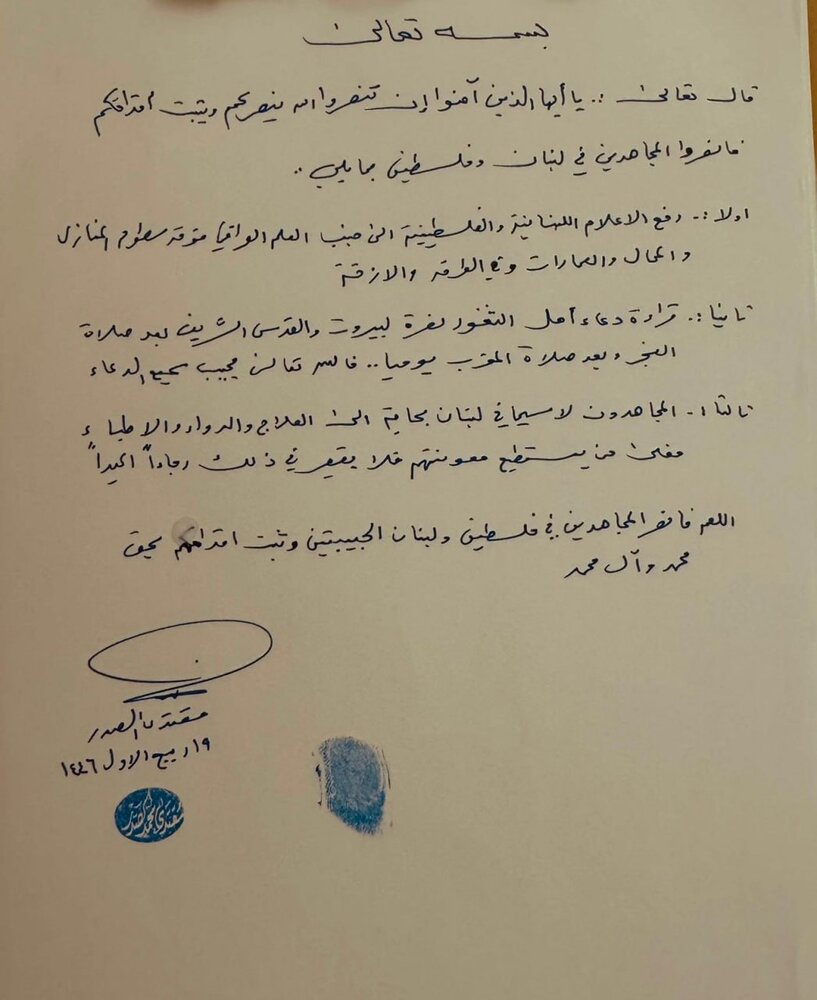 بسمه تعالى
قال تعالى :. يا أيها الذين آمنوا إن تنصروا الله ينصركم ويثبت أقدامكم
فانصروا المجاهدين في لبنان وفلسطين بما يلي ..
اولا :. رفع الاعلام اللبنانية والفلسطينية الى جنب العلم العراقي فوق سطوح المنازل
والمحال والعمارات وفي الطرق والازقة
ثانيا :. قراءة دعاء أهل الثغور لغزة لبيروت والقدس الشريف بعد صلاة
الفجر وبعد صلاة المغرب يوميا .. فالله تعالى مجيب سميع الدعاء
ثالثا :. المجاهدون لا سيما في لبنان بحاجة الى العلاج والدواء والاطباء
فعلى من يستطيع معونتهم فلا يقصر في ذلك رجاءاً اكيداً
اللهم فانصر المجاهدين في فلسطين ولبنان الحبيبتين وثبت اقدامهم بحق
محمد وآل محمد
مقتدى الصدر
١٩ ربيع الاول ١٤٤٦
مقتدى محمد الصدر